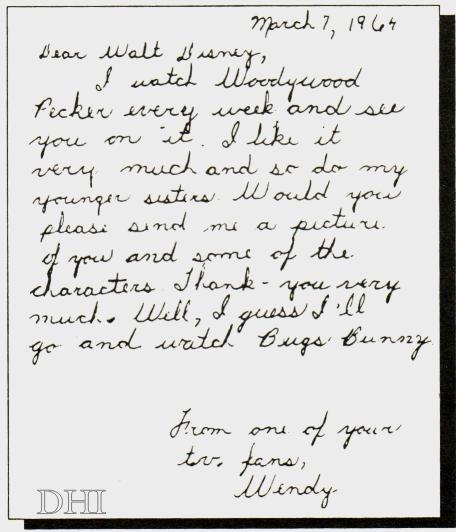 March 7, 1964
Dear Walt Disney,
I watch Woodywood
Pecker every week and see
you on it. I like it
very much and so do my
younger sisters. Would you
please send me a picture
of you and some of the
characters. Thank-you very
much. Well, I guess I'll
go and watch Bugs Bunny
From one of your
t.v. fans,
Wendy
DHI